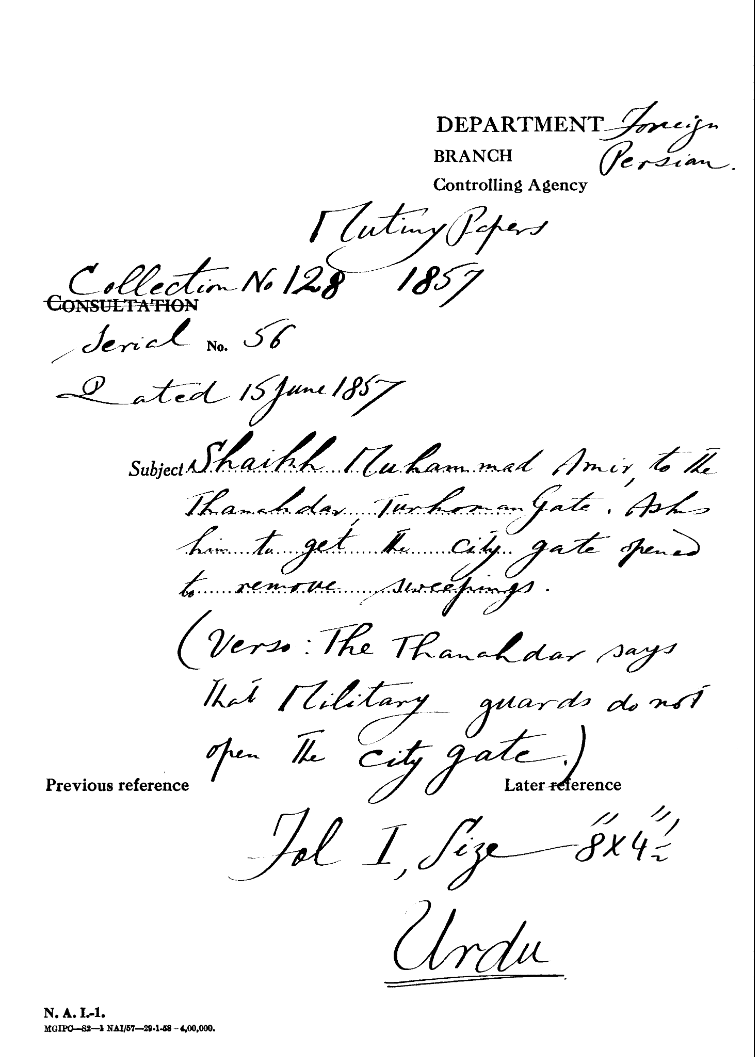 DEPARTMENT Foreign
BRANCH Persian.
Controlling Agency
Mutiny Papers
Collection No 128 1857
CONSULTATION
Serial No. 56
Dated 15 June 1857
Subject Shaikh Muhammad Amir, to the
Thanahdar, Turkoman Gate. Asks
him to get the city gate opened
to remove sweepings.
(Verso: The Thanahdar says
that Military guards do not
open the city gate.)
Previous reference Later reference
Fol I, Size 8"x4½"
Urdu
N. A. I.-1.
MGIPC—S2—1 NAI/57—29-1-58—4,00,000.